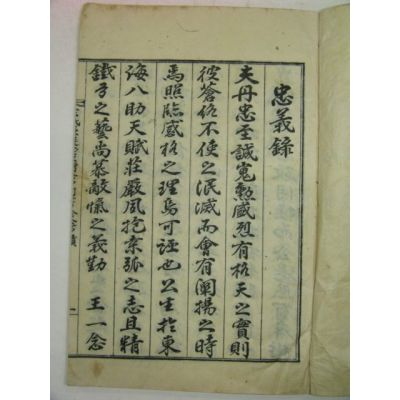 忠義錄
夫丹忠至誠寃勲盛烈有格天之實則
彼蒼俗不使之泯滅而會有闡揚之時
焉照臨感格之理烏可誣也公生於東
海八助天賦莊嚴夙抱桑弧之志且精
鐵子之藝尚慕敵愾之義勤 王一念